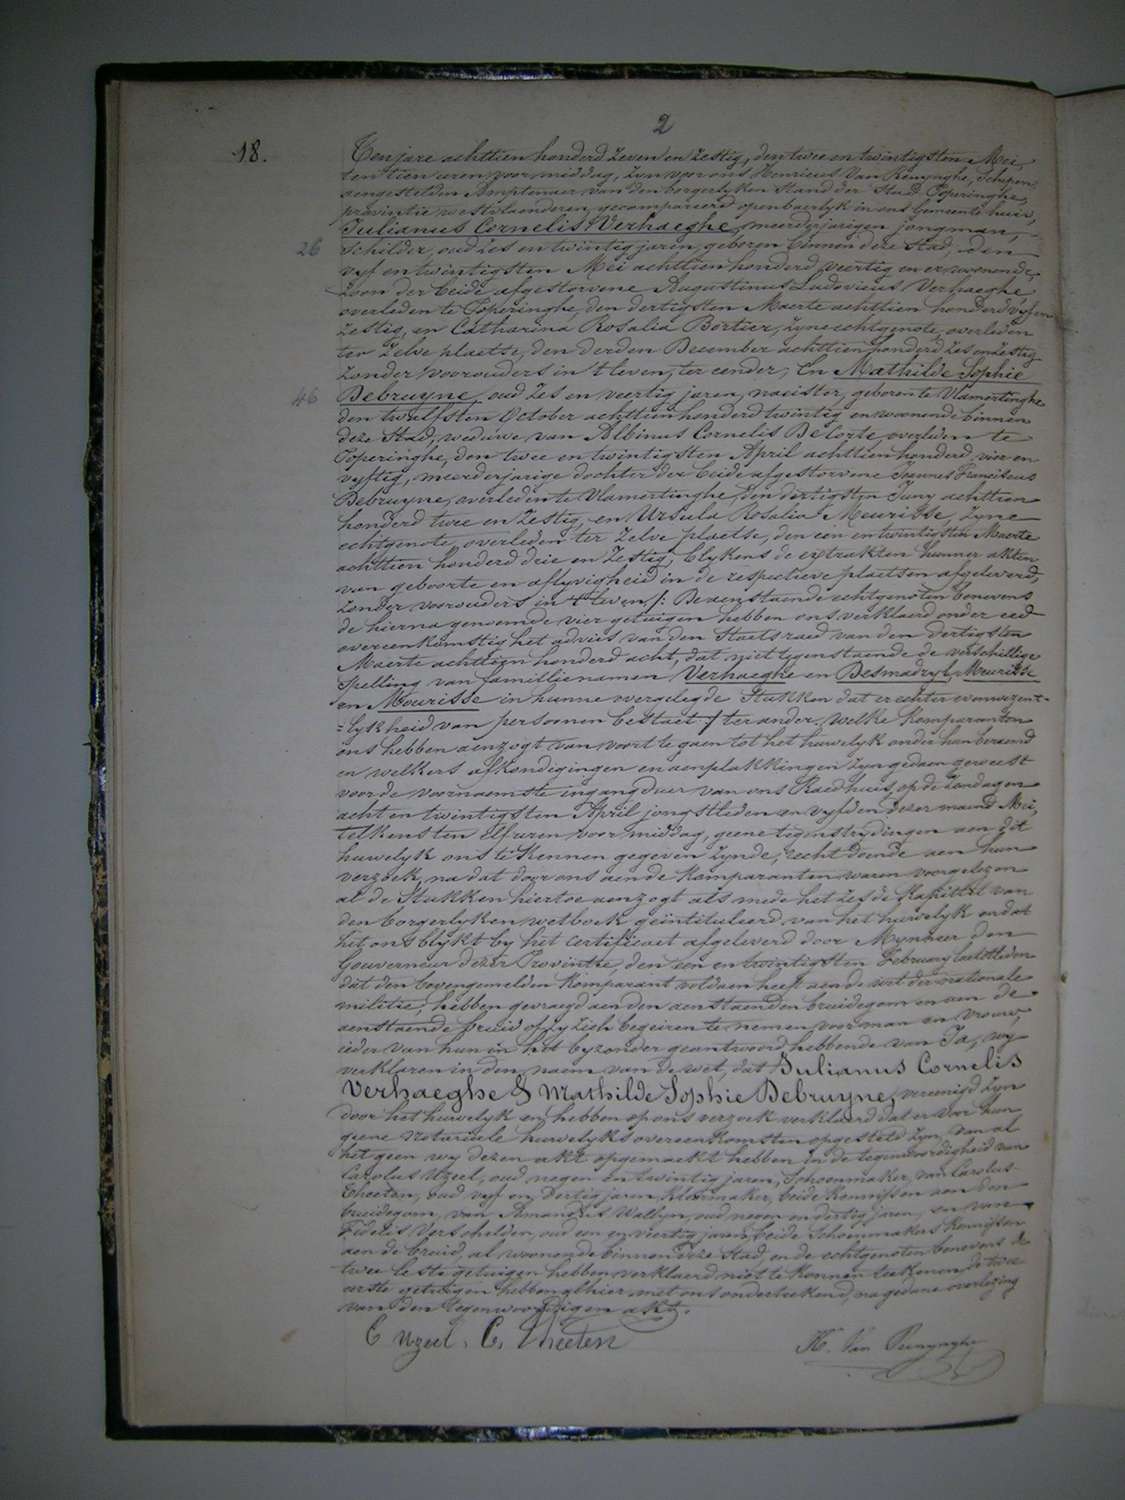 2
18.
Ten jare achttien honderd zeven en zestig, den twee en twintigsten Mei,
ten tien uren voor middag, zyn voor ons Henricus Van Renynghe, Schepen,
aengestelden Amptenaer van den borgerlyken Stand der Stad Poperinghe,
provintie westvlaenderen, gecompareerd openbaerlyk in ons Gemeente huis,
Julianus Cornelis Verhaeghe, meerderjarigen jongman,
26 Schilder, oud zes en twintig jaren, geboren binnen deze Stad, den
vyf en twintigsten Mei achttien honderd veertig en er woonende,
zoon der beide afgestorvene Augustinus Ludovicus Verhaeghe
overleden te Poperinghe, den dertigsten Maerte achttien honderd vyf en
zestig, en Catharina Rosalia Bortier, zyne echtgenote, overleden
ter zelve plaetse, den derden December achttien honderd zes en zestig
zonder voorouders in 't leven, ter eender; En Mathilde Sophie
46 Debruyne, oud zes en veertig jaren, naeister, geboren te Vlamertinghe
den twaelfsten October achttien honderd twintig en woonende binnen
deze Stad, weduwe van Albinus Cornelis Delorte, overleden te
Poperinghe, den twee en twintigsten April achttien honderd vier en
vyftig, meerderjarige dochter der beide afgestorvene Joannes Franciscus
Debruyne, overleden te Vlamertinghe, den dertigsten Juny achttien
honderd twee en zestig, en Ursula Rosalia Meurisse, zyne
echtgenote, overleden ter zelve plaetse, den een en twintigsten Maerte
achttien honderd drie en zestig, blykens de extrakten hunner akten
van geboorte en aflyvigheid in de respective plaetsen afgeleverd,
zonder voorouders in 't leven /: Bevenstaende echtgenoten benevens
de hierna genoemde vier getuigen hebben ons verklaerd onder eed
overeenkomstig het advies van den Staetsraed van den dertigsten
Maerte achttien honderd acht, dat niet tegenstaende de verschillige
Spelling van famillienamen Verhaeghe en Desmadryl, Meurisse
en Mourisse in hunne overgelegde Stukken dat er echter eenwezent-
=lykheid van persoonen bestaet :/ ter ander. welke komparanten
ons hebben aenzogt van voort te gaen tot het huwelyk onder hun beraemd
en welkers afkondigingen en aenplakkingen zyn gedaen geweest
voor de voornaemste ingangdeur van ons Raedhuis, op de Zondagen
acht en twintigsten April jongstleden en vyfden dezer maend Mei,
telkens ten elf uren voor middag, geene tegenstrydingen aen dit
huwelyk ons te kennen gegeven zynde, recht doende aen hun
verzoek, na dat door ons aen de komparanten waren voorgelezen
al de Stukken hiertoe aenzogt als mede het zesde kapittel van
den borgerlyken wetboek geïntituleerd van het huwelyk en dat
het ons blykt by het certificaet afgeleverd door Mynheer den
Gouverneur dezer Provintie, den een en twintigsten February laetstleden
dat den bovengemelden komparant voldaen heeft aen de wet der nationale
militie; hebben gevraegd aen den aenstaenden bruidegom en aen de
aenstaende bruid of zy zich begeiren te nemen voor man en vrouw,
ieder van hun in het byzonder geantwoord hebbende van Ja, wy
verklaren in den naem van de wet, dat Julianus Cornelis
Verhaeghe & Mathilde Sophie Debruyne, vereenigd zyn
door het huwelyk en hebben op ons verzoek verklaerd dat er voor hun
geene Notariele huwelyks overeenkomsten opgesteld zyn, van al
het geen wy dezen akt opgemaekt hebben in de tegenwoordigheid van
Carolus Uzeel, oud negen en twintig jaren, Schoenmaker, van Carolus
Theeten, oud vyf en dertig jaren, kleermaker, beide kennissen aen den
bruidegom, van Amandus Wallyn, oud negen en dertig jaren, en van
Fidelis Verschelden, oud een en veertig jaren, beide Schoenmakers kennissen
aen de bruid, al woonende binnen deze Stad, en de echtgenoten benevens de
twee leste getuigen hebben verklaerd niet te konnen teekenen, de twee
eerste getuigen hebben alhier met ons onderteekend, na gedane overlezing
van den tegenwoordigen akt.
C Uzeel. C. Theeten H. Van Renynghe